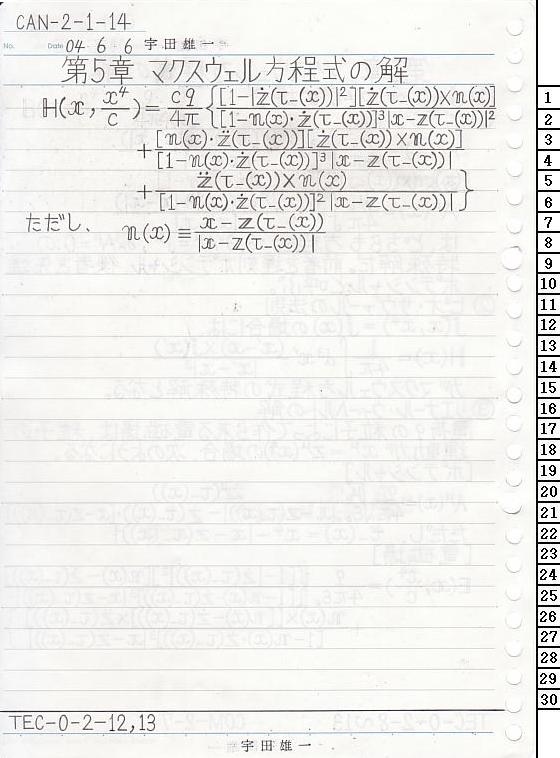 CAN-2-1-14
No. Date 04 6 6 宇田雄一
第5章 マクスウェル方程式の解
ℍ(𝕩, x⁴/c) = cq/4π { [1-|ż(τ₋(x))|²][ż(τ₋(x))×𝕟(x)] / [1-𝕟(x)·ż(τ₋(x))]³|𝕩-𝕫(τ₋(x))|²
+ [𝕟(x)·z̈(τ₋(x))][ż(τ₋(x))×𝕟(x)] / [1-𝕟(x)·ż(τ₋(x))]³|𝕩-𝕫(τ₋(x))|
+ z̈(τ₋(x))×𝕟(x) / [1-𝕟(x)·ż(τ₋(x))]²|𝕩-𝕫(τ₋(x))| }
ただし、 𝕟(x) ≡ 𝕩-𝕫(τ₋(x)) / |𝕩-𝕫(τ₋(x))|
TEC-0-2-12,13
宇田雄一
1
2
3
4
5
6
7
8
9
10
11
12
13
14
15
16
17
18
19
20
21
22
23
24
25
26
27
28
29
30